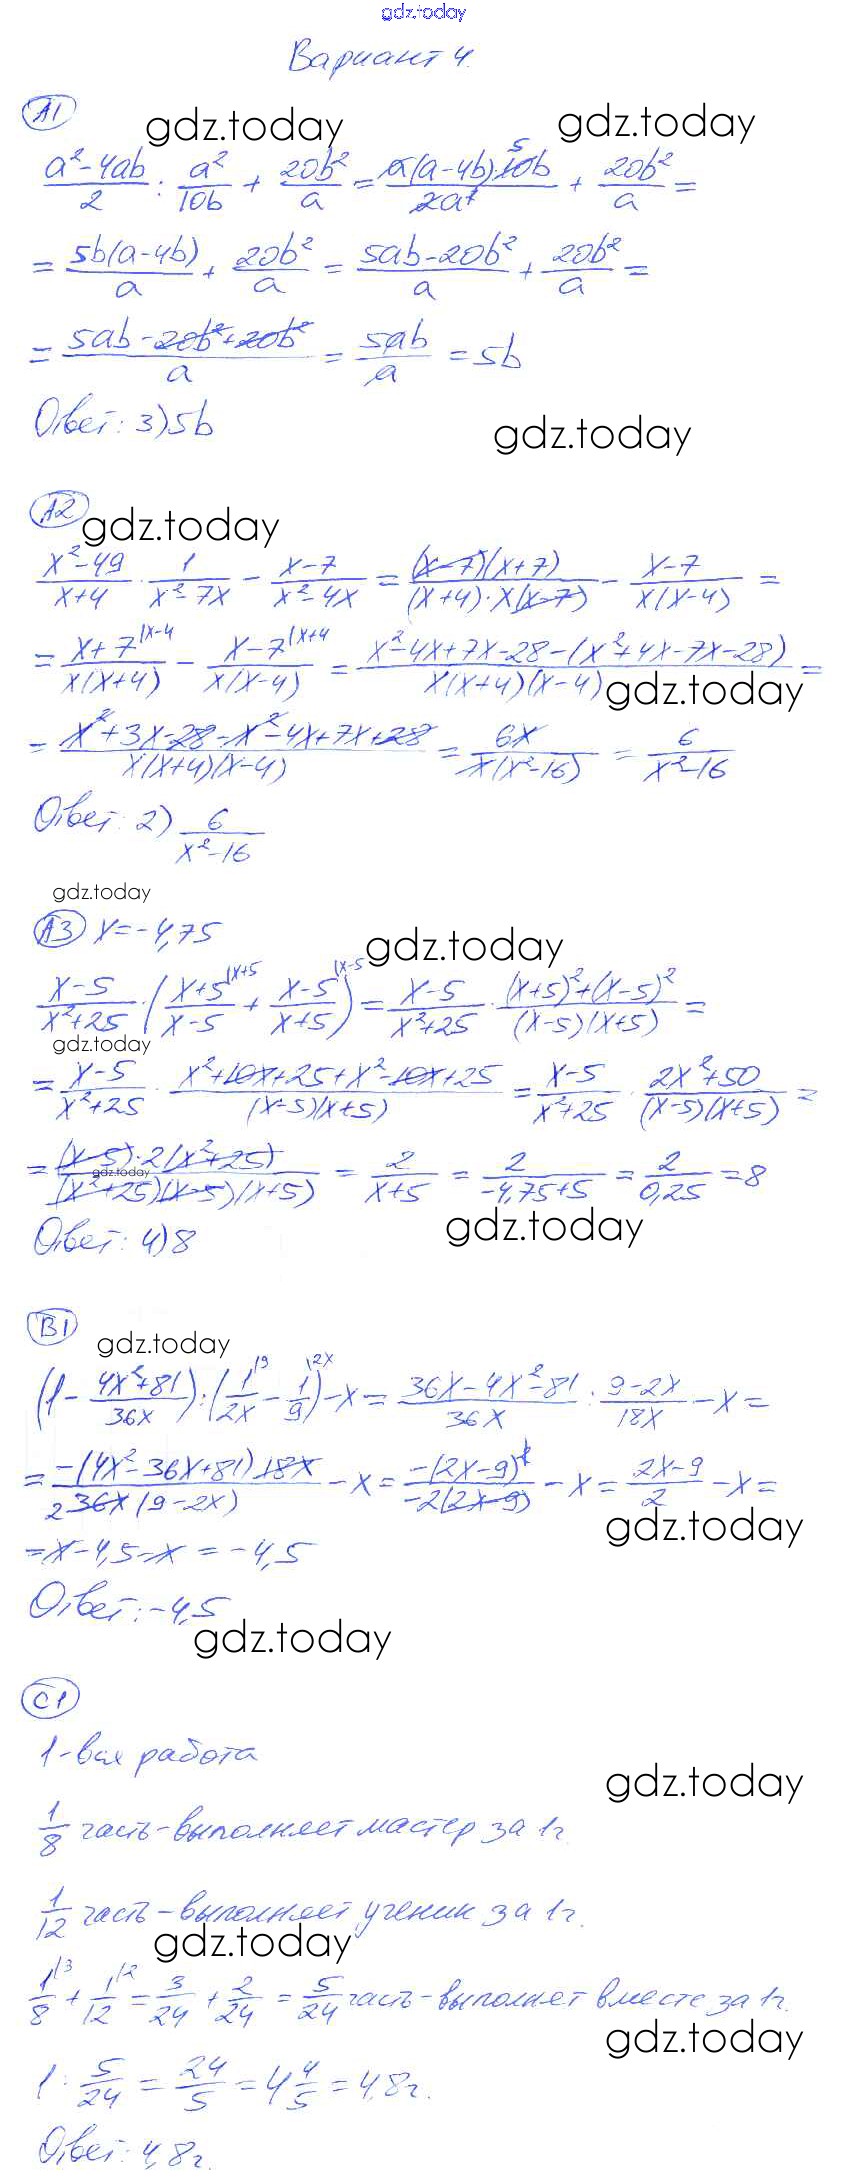 gdz.today
Вариант 4.
А1
gdz.today gdz.today
(a²-4ab)/2 : a²/10b + 20b²/a = a(a-4b)·10b/2a² + 20b²/a =
= 5b(a-4b)/a + 20b²/a = (5ab-20b²)/a + 20b²/a =
= (5ab-20b²+20b²)/a = 5ab/a = 5b
Ответ: 3) 5b
gdz.today
А2
gdz.today
(x²-49)/(x+4) · 1/(x²-7x) - (x-7)/(x²-4x) = (x-7)(x+7)/((x+4)·x(x-7)) - (x-7)/(x(x-4)) =
= (x+7)/(x(x+4)) |x-4 - (x-7)/(x(x-4)) |x+4 = (x²-4x+7x-28-(x²+4x-7x-28))/(x(x+4)(x-4)) =
gdz.today
= (x²+3x-28-x²-4x+7x+28)/(x(x+4)(x-4)) = 6x/(x(x²-16)) = 6/(x²-16)
Ответ: 2) 6/(x²-16)
gdz.today
А3 x=-4,75
gdz.today
(x-5)/(x²+25) · ((x+5)/(x-5) |x+5 + (x-5)/(x+5) |x-5) = (x-5)/(x²+25) · ((x+5)²+(x-5)²)/((x-5)(x+5)) =
gdz.today
= (x-5)/(x²+25) · (x²+10x+25+x²-10x+25)/((x-5)(x+5)) = (x-5)/(x²+25) · (2x²+50)/((x-5)(x+5)) =
= (x-5)·2(x²+25)/((x²+25)(x-5)(x+5)) = 2/(x+5) = 2/(-4,75+5) = 2/0,25 = 8
gdz.today
Ответ: 4) 8
gdz.today
В1
gdz.today
(1 - (4x²+81)/36x) : (1/2x |9 - 1/9 |2x) - x = (36x-4x²-81)/36x : (9-2x)/18x - x =
= -(4x²-36x+81)·18x/(36x(9-2x)) - x = -(2x-9)²/(-2(2x-9)) - x = (2x-9)/2 - x =
gdz.today
= x-4,5-x = -4,5
Ответ: -4,5
gdz.today
С1
1-вся работа
gdz.today
1/8 часть-выполняет мастер за 1ч.
1/12 часть-выполняет ученик за 1ч.
gdz.today
1/8 |3 + 1/12 |2 = 3/24 + 2/24 = 5/24 часть-выполнят вместе за 1ч.
gdz.today
1 : 5/24 = 24/5 = 4 4/5 = 4,8ч.
Ответ: 4,8ч.